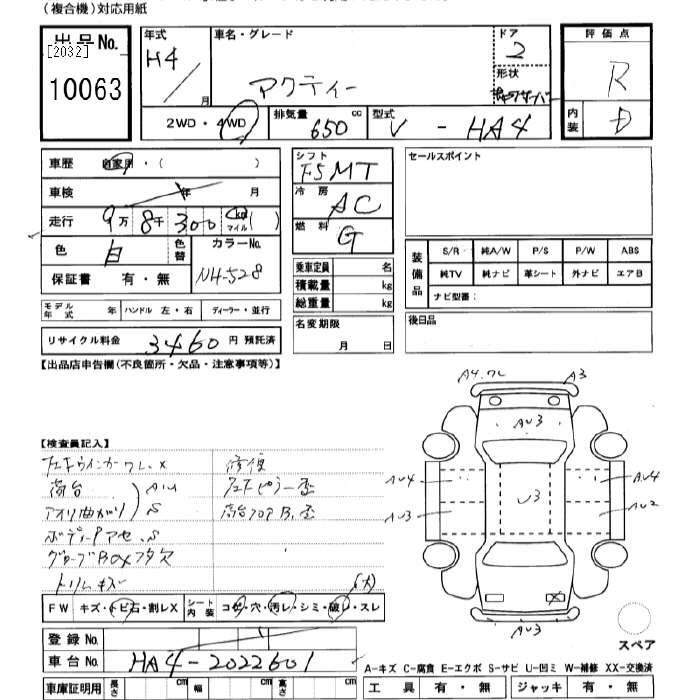 (複合機)対応用紙
出品No.
[2032]
10063
年式
H4
/
月
車名・グレード
アクティー
ドア
2
形状
評価点
R
内装
D
2WD・4WD
排気量
650
cc
型式
V - HA4
車歴 自家用・( )
車検 年 月
走行 9万8千300 km マイル ( )
色 白
色替
カラーNo.
NH-528
保証書 有・無
モデル年式 年 ハンドル 左・右 ディーラー・並行
リサイクル料金 3460 円 預託済
シフト
F5MT
冷房
AC
燃料
G
乗車定員 名
積載量 kg
総重量 kg
名変期限
月 日
セールスポイント
装備品
S/R 純A/W P/S P/W ABS
純TV 純ナビ 革シート 外ナビ エアB
ナビ型番:
後日品
【出品店申告欄(不良箇所・欠品・注意事項等)】
【検査員記入】
フェンダウインカーワレ.X
荷台
アオリ曲がり
AU
S
ボディーPアセ.S
グローブBOXフタ欠
トリムキズ
修復
フェピラー歪
荷台フロアB.歪
(大)
A4.ワレ
A3
AU3
AU4
AU4
U3
AU3
AU2
X
AU3
スペア
FW キズ・トビ石・割レX
シート内装
コゲ・穴・汚レ・シミ・破レ・スレ
登録No.
車台No. HA4-2022601
車庫証明用 長さ cm 幅 cm 高さ cm
A-キズ C-腐食 E-エクボ S-サビ U-凹ミ W-補修 XX-交換済
工具 有・無 ジャッキ 有・無